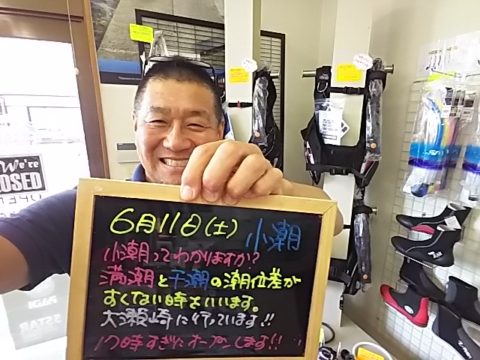 6月11日(土) 小潮
小潮ってわかりますか?
満潮と干潮の潮位差が
すくない時をいいます。
大瀬崎に行っています!!
17時すぎにオープンします!!
We're
CLOSED
PADI
5 STAR